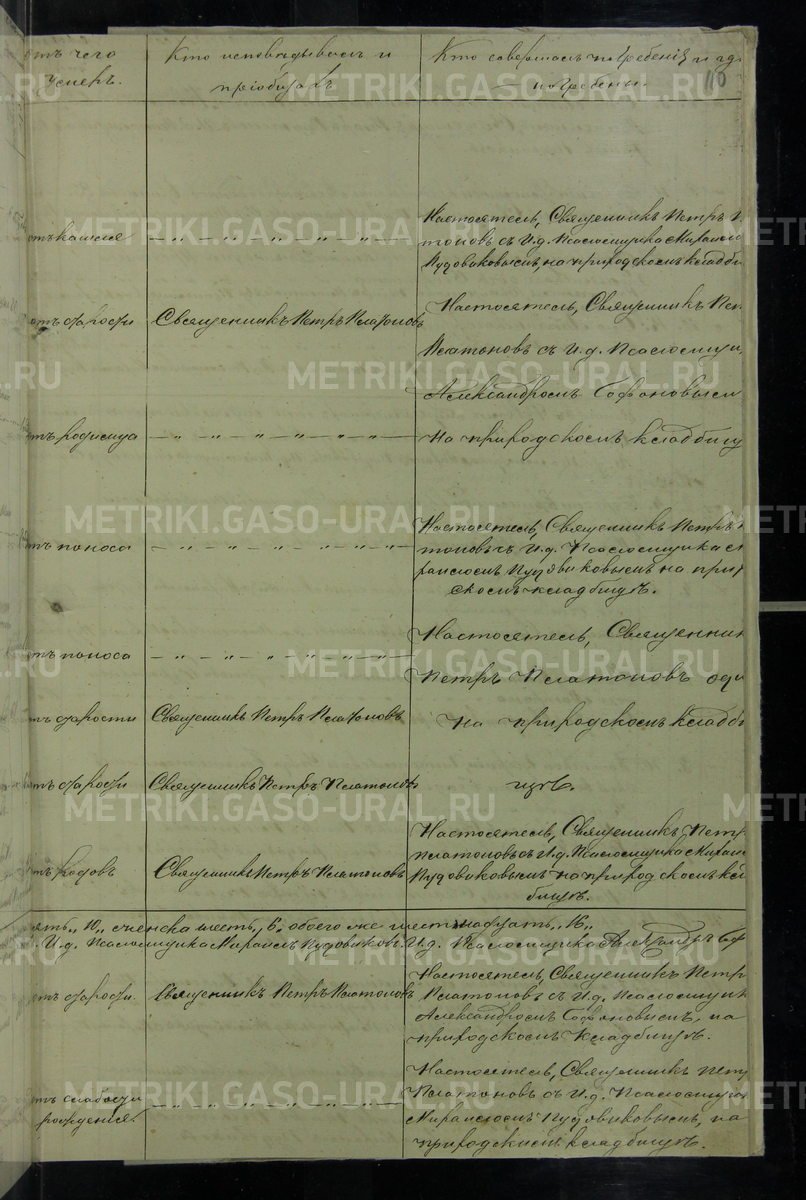 отъ чего
умеръ.
Кто исповѣдывалъ и
пріобщалъ
Кто совершалъ погребеніе и гдѣ
погребены.
110
отъ кашля
Настоятель, Священникъ Петръ
тоновъ съ И.д. Псаломщика Михаило
Пудовиковымъ, на приходскомъ кладби
отъ старости
Священникъ Петръ Платоновъ
Настоятель, Священникъ Пет
Платоновъ съ И.д. Псаломщи
Александромъ Софоновыми
отъ родимца
на приходскомъ кладбищ
отъ поноса
Настоятель, Священникъ Петръ
тоновъ съ И.д. Псаломщика
хаиломъ Пудовиковымъ на прих
скомъ кладбищѣ.
отъ поноса
Настоятель, Священник
Петръ Платоновъ оди
отъ старости
Священникъ Петръ Платоновъ
На приходскомъ кладби
отъ старости
Священникъ Петръ Платоновъ
щѣ.
отъ родовъ
Священникъ Петръ Платоновъ
Настоятель, Священникъ Петр
Платоновъ съ И.д. Псаломщика Михаил
Пудовиковымъ на приходскомъ кла
бищѣ.
ять „10„ женска шесть „6„ обоего же шестнадцать „16„
И.д. Псаломщика Михаилъ Пудовиковъ. И.д. Псаломщика Александръ Соф
отъ старости.
Священникъ Петръ Платоновъ
Настоятель, Священникъ Петр
Платоновъ съ И.д. Псаломщик
Александромъ Софоновымъ, на
приходскомъ кладбищѣ.
отъ слабости
рожденія.
Настоятель, Священникъ Петр
Платоновъ съ И.д. Псаломщик
Михаиломъ Пудовиковымъ, на
приходскомъ кладбищѣ.
METRIKI.GASO-URAL.RU